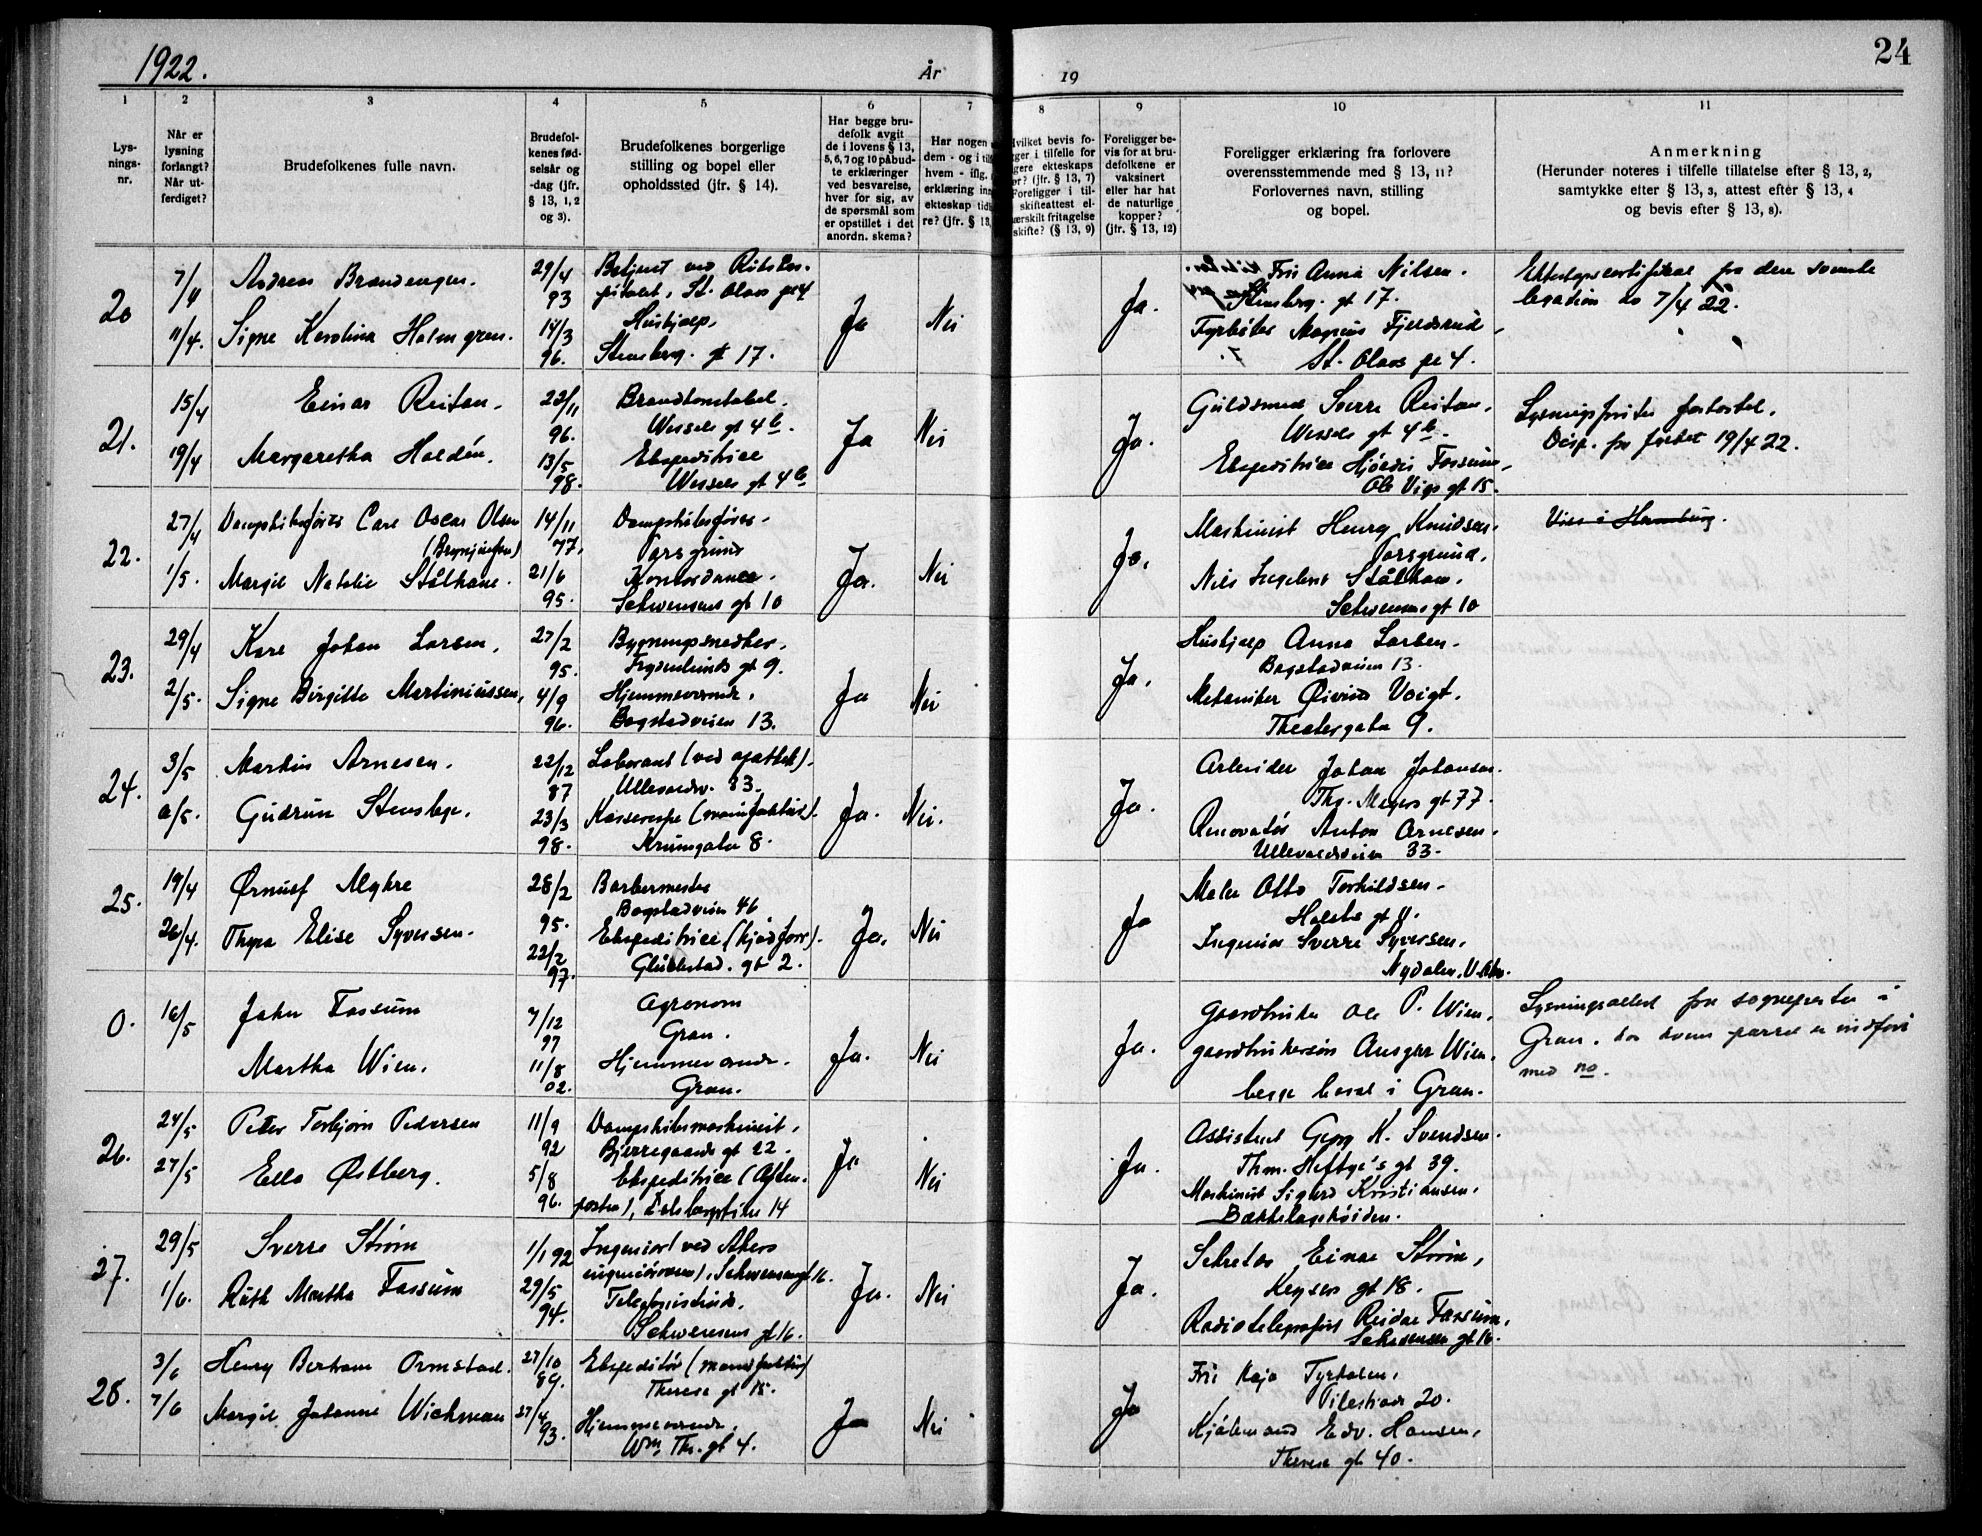 1922.
År
19
24
1
2
3
4
5
6
7
8
9
10
11
Lys-
nings-
nr.
Når er
lysning
forlangt?
Når ut-
ferdiget?
Brudefolkenes fulle navn.
Brudefol-
kenes fød-
selsår og
-dag (jfr.
§ 13, 1, 2
og 3).
Brudefolkenes borgerlige
stilling og bopel eller
opholdssted (jfr. § 14).
Har begge bru-
defolk avgit
de i lovens § 13,
5, 6, 7 og 10 påbud-
te erklæringer
ved besvarelse,
hver for sig, av
de spørsmål som
er opstillet i det
anordn. skema?
Har nogen
dem - og i
hvem - iflg.
erklæring
ekteskap
re? (jfr. § 13,
bevis fo-
i tilfelle for
ekteskaps
(jfr. § 13, 7)
Foreligger i til-
skifteattest el-
fritagelse
skifte? (§ 13, 9)
Foreligger be-
vis for at bru-
defolkene er
vaksinert
eller har hat
de naturlige
kopper?
(jfr. § 13, 12)
Foreligger erklæring fra forlovere
overensstemmende med § 13, 11?
Forlovernes navn, stilling
og bopel.
Anmerkning
(Herunder noteres i tilfelle tillatelse efter § 13, 2,
samtykke efter § 13, 3, attest efter § 13, 4
og bevis efter § 13, 8).
20
7/4
11/4.
Andreas Brændengen.
Signe Karolina Holmgren.
29/4
93
14/3
96.
Betjent ved Rikshos-
pitalet, St. Olavs gt 4
Hushjælp,
Stensberg. gt 17.
Ja
Nei
Ja.
Frk Anna Nilsen.
Stensberg. gt 17.
Fyrbøter Magnus Fjeldsrud,
St. Olavs gt 4.
fra den svenske
legation av 7/4 22.
21.
15/4
19/4
Einar Reitan.
Margaretha Haldén.
23/11
96.
13/5
98.
Brandkonstabel.
Wessels gt 4b.
Ekspeditrice
Wessels gt 4b
Ja
Nei
Ja.
Guldsmed Sverre Reitan,
Wessels gt 4b.
Ekspeditrice Hjørdis Fossum,
Ole Vigs gt 15.
Lysningsfrister forkortet.
Disp. fra 19/4 22.
22.
27/4
1/5.
Dampskibsfører Carl Oscar Olsen
Margit Natalie Stålhane.
14/11
77.
21/6
95.
Dampskibsfører.
Porsgrund
Kontordame.
Schwensens gt 10
Ja.
Nei
Ja.
Maskinist Henry Knudsen.
Porsgrund.
Nils Stålhane.
Schwensens gt 10
Vies i Hamburg.
23.
29/4
2/5.
Kåre Johan Larsen,
Signe Birgitte Martiniussen,
27/2
95.
4/9
96.
Bygningssnedker.
Frydenlunds gt 9.
Hjemmeværende.
Bogstadveien 13.
Ja
Nei
Ja.
Hushjælp Anna Larsen.
Bogstadveien 13.
Mekaniker Øivind Voigt.
Theatergata 9.
24.
3/5
8/5.
Martin Arnesen.
Gudrun Stensby.
22/12
87
23/3
98.
Laborant (ved apothek).
Ullevaalsv. 33.
Kassererske (manufaktur).
Krumgaten 8.
Ja.
Nei.
Ja.
Arbeider Johan Johansen.
Thv. Meyers gt 77.
Renovatør Anton Arnesen.
Ullevaalsveien 33.
25.
19/4
26/4.
Ørnulf Myhre
Thyra Elise Syversen.
28/2
95.
22/2
97.
Barbermester
Bogstadveien 46
Ekspeditrice (kjødforr).
Glückstad. gt 2.
Ja.
Nei
Ja
Maler Otto Torkildsen.
Holsts gt 4.
Ingeniør Sverre Syversen,
Nydalen, V. Aker.
0.
16/5
John Fossum
Martha Wien.
7/12
97
11/8
02.
Agronom
Gran.
Hjemmeværende.
Gran.
Ja.
Nei
Ja.
Gaardbruker Ole P. Wien,
gaardbrukersøn Ansgar Wien.
begge bosat i Gran.
Lysningsattest fra sognepresten i
Gran, hos hvem parret er indført
med no.
26.
24/5
27/5
Peter Torbjørn Pedersen
Ella Østberg.
11/9
92
5/8
96.
Dampskibsmaskinist,
Bjerregaards gt 22.
Ekspeditrice (Aften-
posten), 14
Ja
Nei
Ja.
Assistent Georg K. Svendsen.
Thm. Heftye's gt 39.
Maskinist Sigurd Kristiansen,
Bækkelagshøiden.
27.
29/5
1/6.
Sverre Strøm
Ruth Martha Fossum
1/1 92
29/5
94.
Ingeniør (ved Akers
ingeniørvæsen), Schwensens gt 16.
Telefonistinde.
Schwensens gt 16.
Ja.
Nei
Ja.
Sekretær Einar Strøm,
Keysers gt 18.
Radiotelegrafist Reidar Fossum,
Schwensens gt 16.
28.
3/6
7/6
Henry Bertram Ormstad.
Margit Johanne Wichmann
27/10
89.
27/4
93.
Ekspeditør (manufaktur)
Therese gt 15.
Hjemmeværende.
Wm. Th. gt 4.
Ja
Nei
Ja
Frk Kaja Fyrhalen,
20.
Kjøbmand Edv. Hansen,
Therese gt 40.